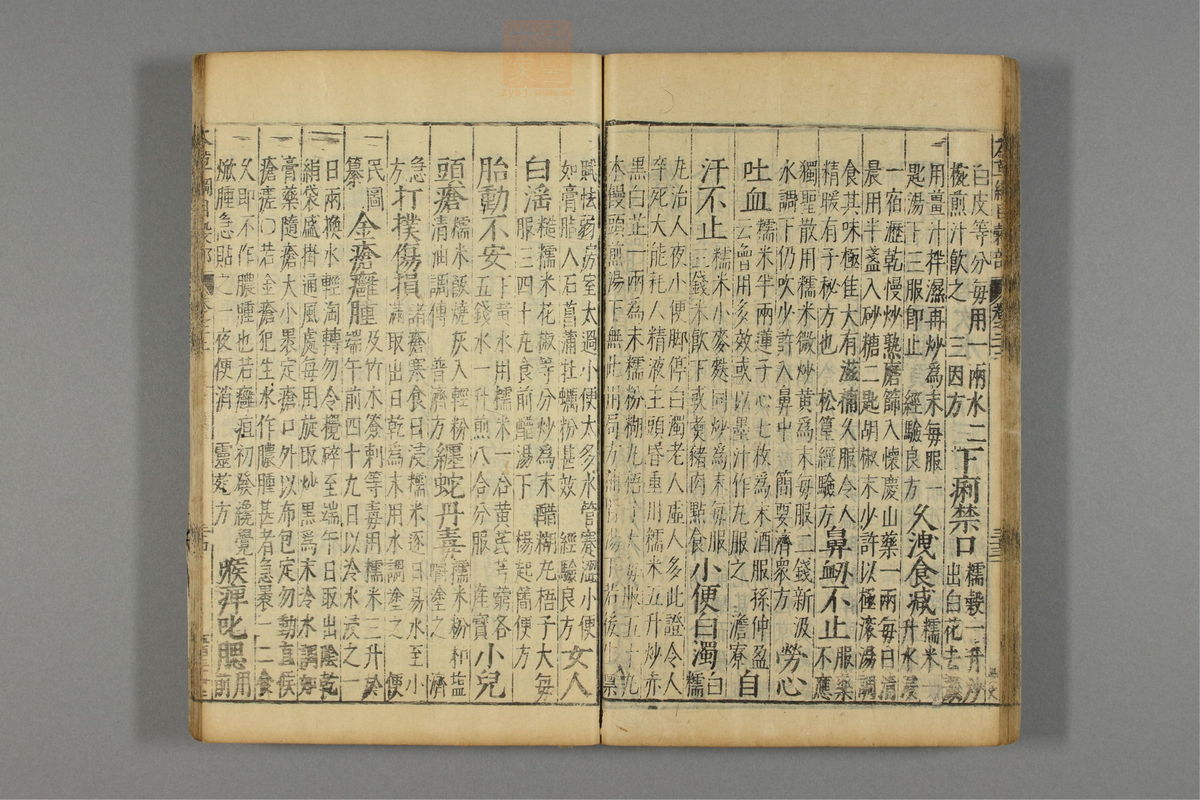 白皮等分每用一兩水二
椀煎汁飲之 三因方
下痢禁口
糯穀一升炒
出白花去殻
用薑汁拌濕再炒為末每服一
匙湯下三服即止 經驗良方
久洩食減
糯米一
升水浸
一宿瀝乾慢炒熟磨篩入懷慶山藥一兩每日清
晨用半盞入砂糖二匙胡椒末少許以極滾湯調
食其味極佳大有滋補久服令人
精暖有子秘方也 松篁經驗方
鼻衄不止
服藥
不應
獨聖散用糯米微炒黃為末每服二錢新汲
水調下仍吹少許入鼻中 簡要濟衆方
勞心
吐血
糯米半兩蓮子心七枚為末酒服孫仲盈
云曾用多效或以墨汁作丸服之 澹寮
自
汗不止
糯米小麥麩同炒為末每服
三錢米飲下或煮豬肉點食
小便白濁
白
糯
丸治人夜小便脚停白濁老人虛人多此證令人
卒死大能耗人精液主頭昏重用糯米五升炒赤
黑白芷一兩為末糯粉糊丸梧子大每服五十丸
木饅頭煎湯下無此用局方補腎湯下若後生禀
賦怯弱房室太過小便太多水管蹇澀小便
如膏脂入石菖蒲牡蠣粉甚效 經驗良方
女人
白淫
糙糯米花椒等分炒為末醋糊丸梧子大每
服三四十丸食前醋湯下 楊起簡便方
胎動不安
下黃水用糯米一合黃芪芎藭各
五錢水一升煎八合分服 產寶
小兒
頭瘡
糯米飯燒灰入輕粉
清油調傅 普濟方
纏蛇丹毒
糯米粉和鹽
嚼塗之 濟
急
方
打撲傷損
諸瘡寒食日浸糯米逐日易水至小
滿取出日乾為末用水調塗之 便
民圖
纂
金瘡癰腫
及竹木簽刺等毒用糯米三升於
端午前四十九日以冷水浸之一
日兩換水輕淘轉勿令攪碎至端午日取出陰乾
絹袋盛掛通風處每用旋取炒黑為末冷水調如
膏藥隨瘡大小裹定瘡口外以布包定勿動直候
瘡瘥〇若金瘡犯生水作膿腫甚者急裹一二食
久即不作膿腫也若癰疽初發纔覺
焮腫急貼之一夜便消 靈苑方
喉痺吒腮
用
前
本草綱目穀部